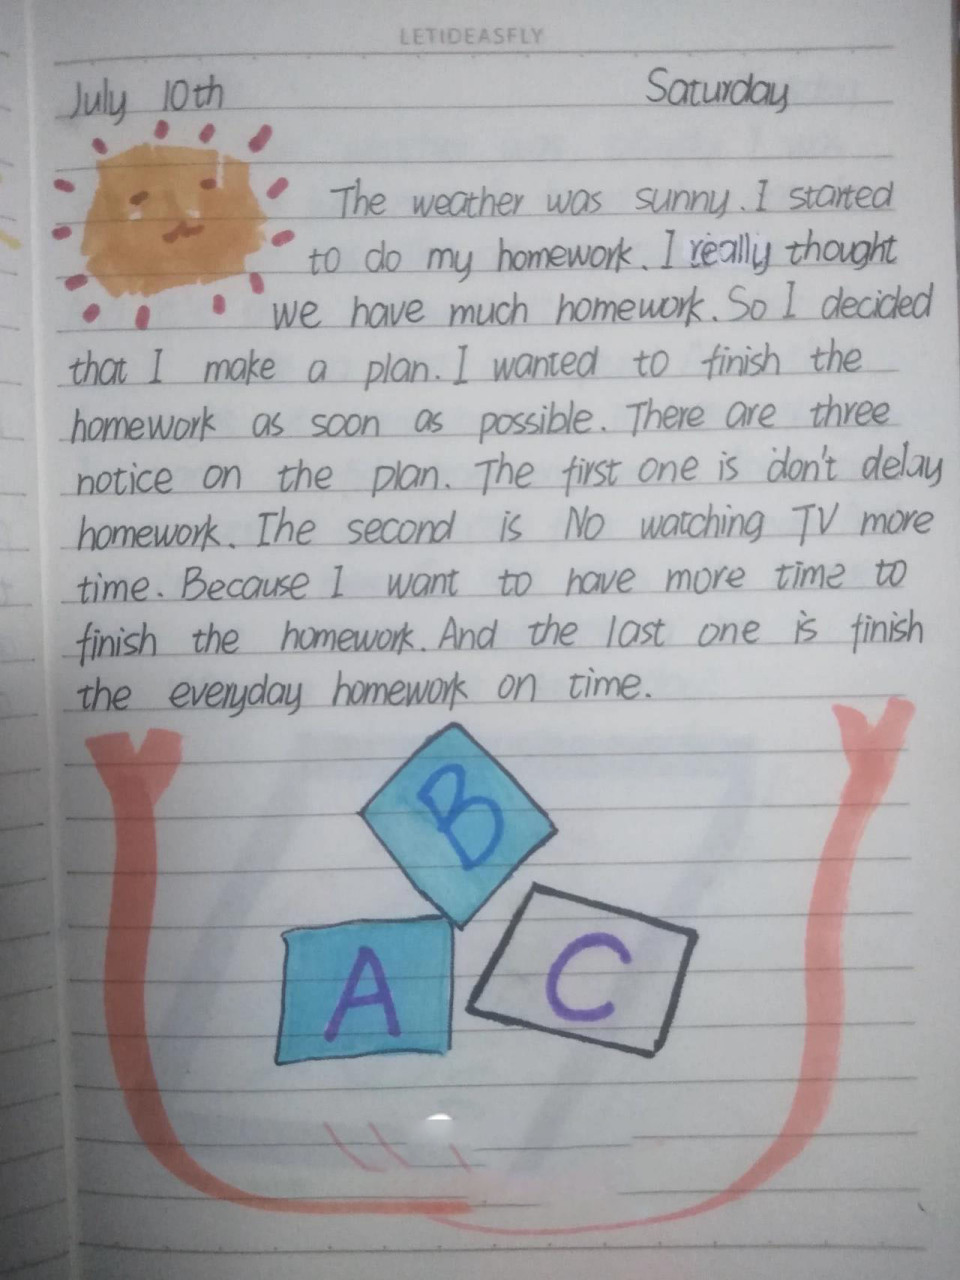 LETIDEASFLY
July 10th Saturday
The weather was sunny. I started
to do my homework. I really thought
we have much homework. So I decided
that I make a plan. I wanted to finish the
homework as soon as possible. There are three
notice on the plan. The first one is don't delay
homework. The second is No watching TV more
time. Because I want to have more time to
finish the homework. And the last one is finish
the everyday homework on time.
B
A C